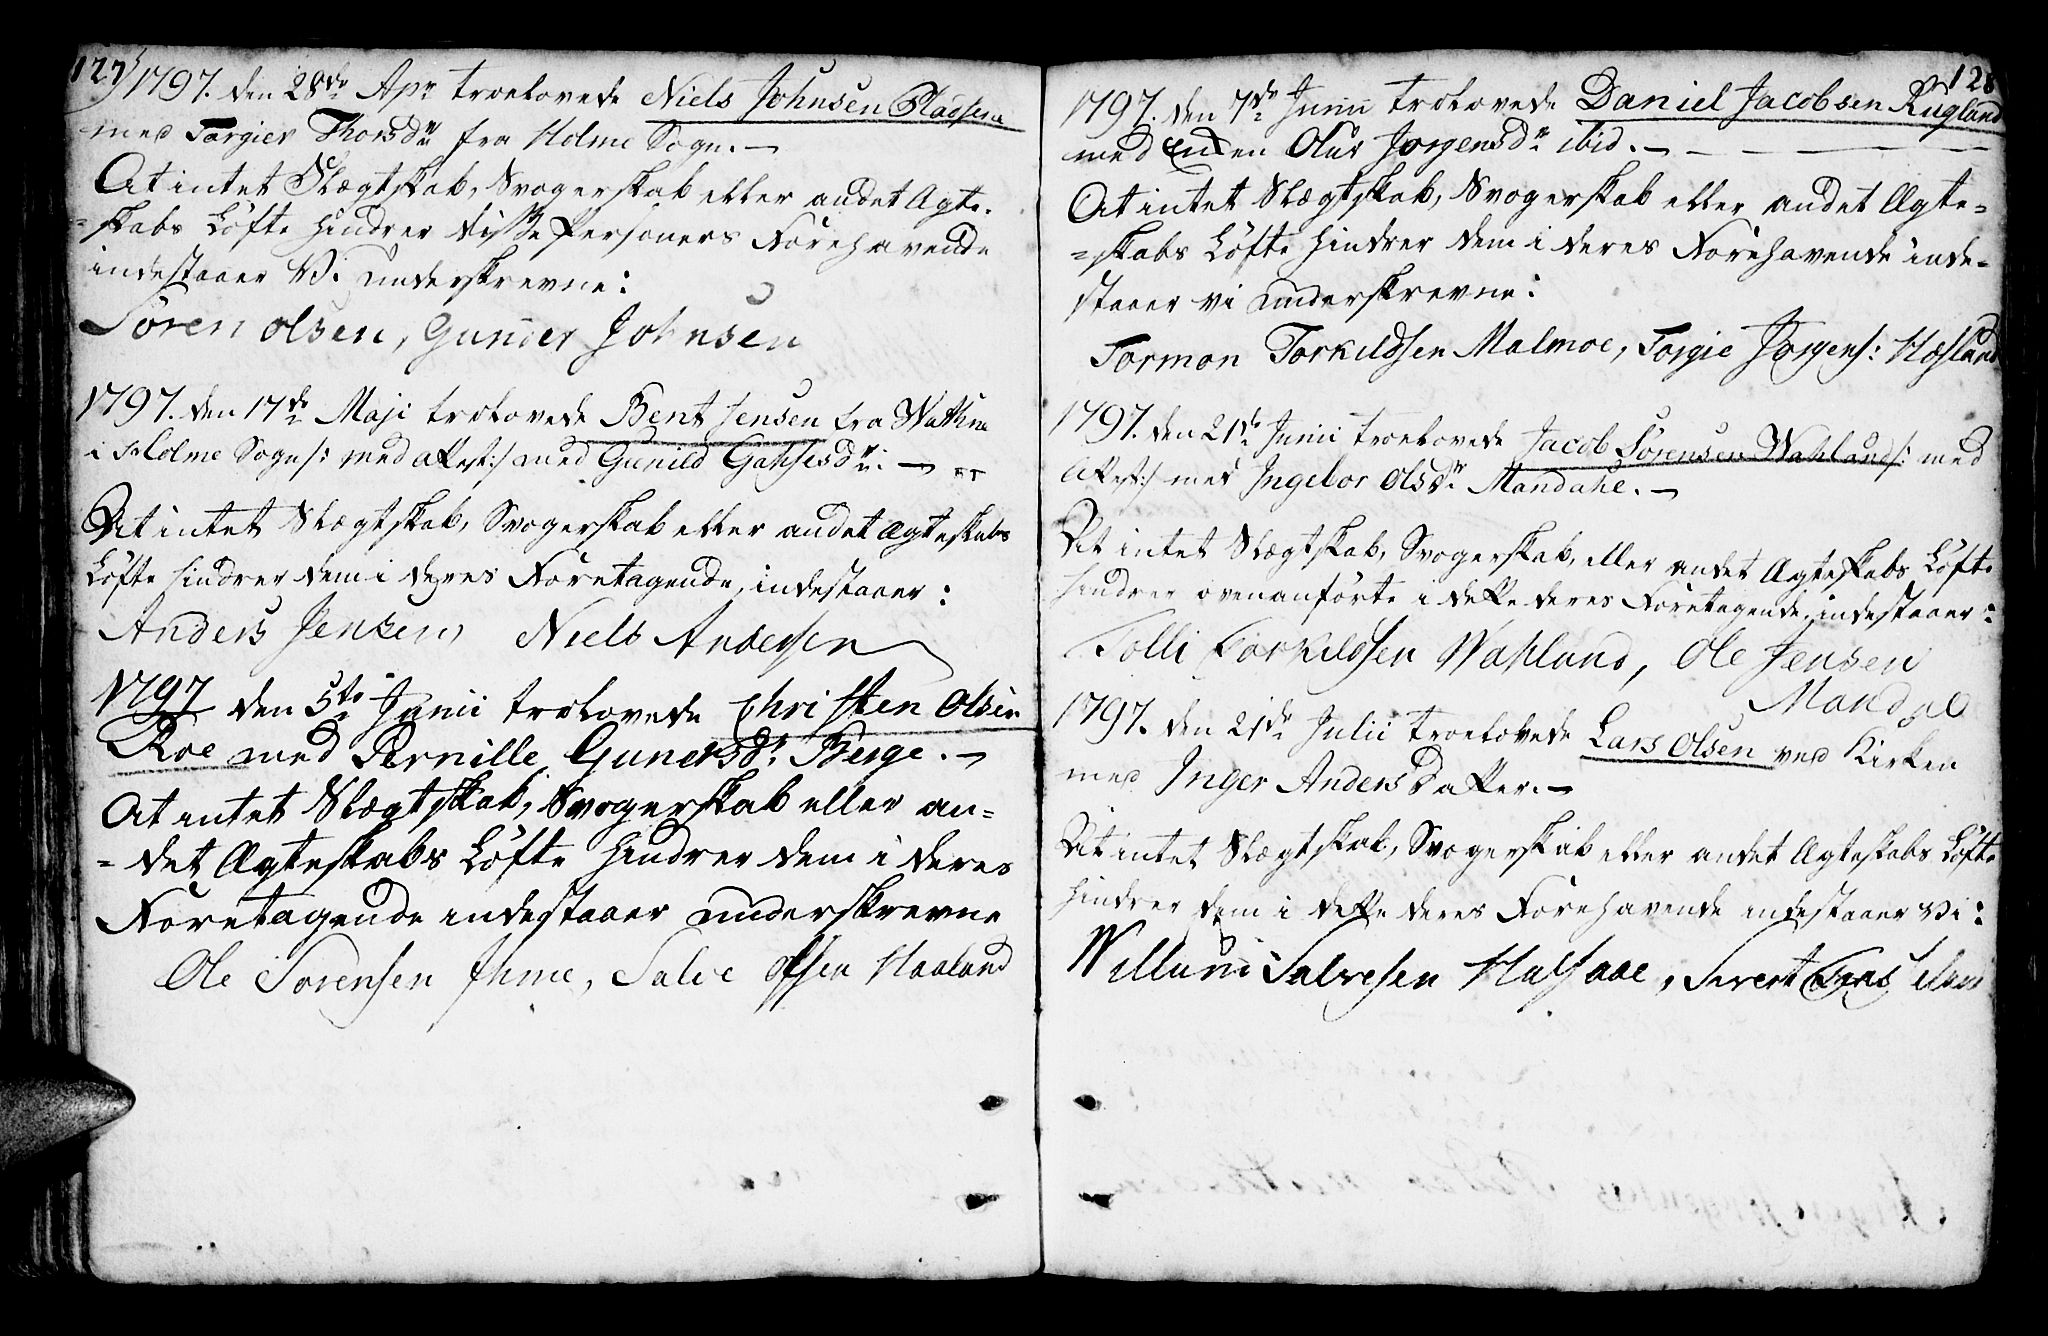 127)
1797. den 28de Apr troelovede Niels Johnsen Pladsene
med Torgier Thorsdr fra Holme Sogn. —
At intet Slægtskab, Svogerskab eller andet Ægte-
=skabs Løfte hindrer disse Personers Forehavende
indestaaer Vi underskrevne:
Søren Olsen, Gunder Johnsen
1797. den 17de Maji trolovede Bent Jensen fra
i Holme Sogn /: med attest :/ med Gunild dr. —
At intet Slægtskab, Svogerskab eller andet Ægteskabs
Løfte hindrer dem i deres Foretagende, indestaaer:
Anders Jensen, Niels Andersen
1797 den 5te Junii trolovede Christen Olsen
Roe med Pernille Gunersdr. Berge. —
At intet Slægtskab, Svogerskab eller an=
=det Ægteskabs Løfte hindrer dem i deres
Foretagende indestaaer underskrevne
Ole Sørensen Ihme, Salve Olsen Haaland
128
1797. den 7de Junii trolovede Daniel Jacobsen Rugland
med Enken Jørgensdr ibid. —
At intet Slægtskab, Svogerskab eller andet Ægte=
=skabs Løfte hindrer dem i deres Forehavende inde=
staaer vi underskrevne:
Tormon Torkildsen Malmoe, Torgie Jørgens: Høsland
1797. den 21de Junii troelovede Jacob Sørensen Wahland /: med
Attest :/ med Ingebor Olsdr Mandahl. —
At intet Slægtskab, Svogerskab, eller andet Ægteskabs Løfte
hindrer ovenanførte i dette deres Foretagende, indestaaer:
Tolli Torkildsen Wahland, Ole Jensen
Mandal
1797. den 21de Julii troelovede Lars Olsen ved Kirken
med Inger Anders Datter. —
At intet Slægtskab, Svogerskab eller andet Ægteskabs Løfte
hindrer dem i dette deres Forehavende indestaaer Vi:
Willum Salvesen Halsaae, Sivert